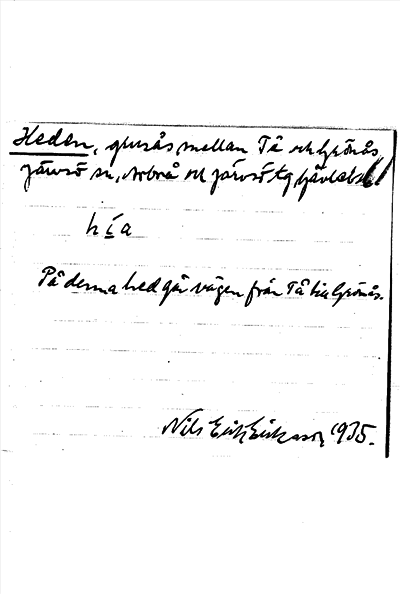 Heden, grusås mellan Tå och Grönås,
Järvsö sn, Arbrå och Järvsö tg Gävleb. l.
h í a
På denna hed går vägen från Tå till Grönås.
Nils Erik Eriksson 1935.